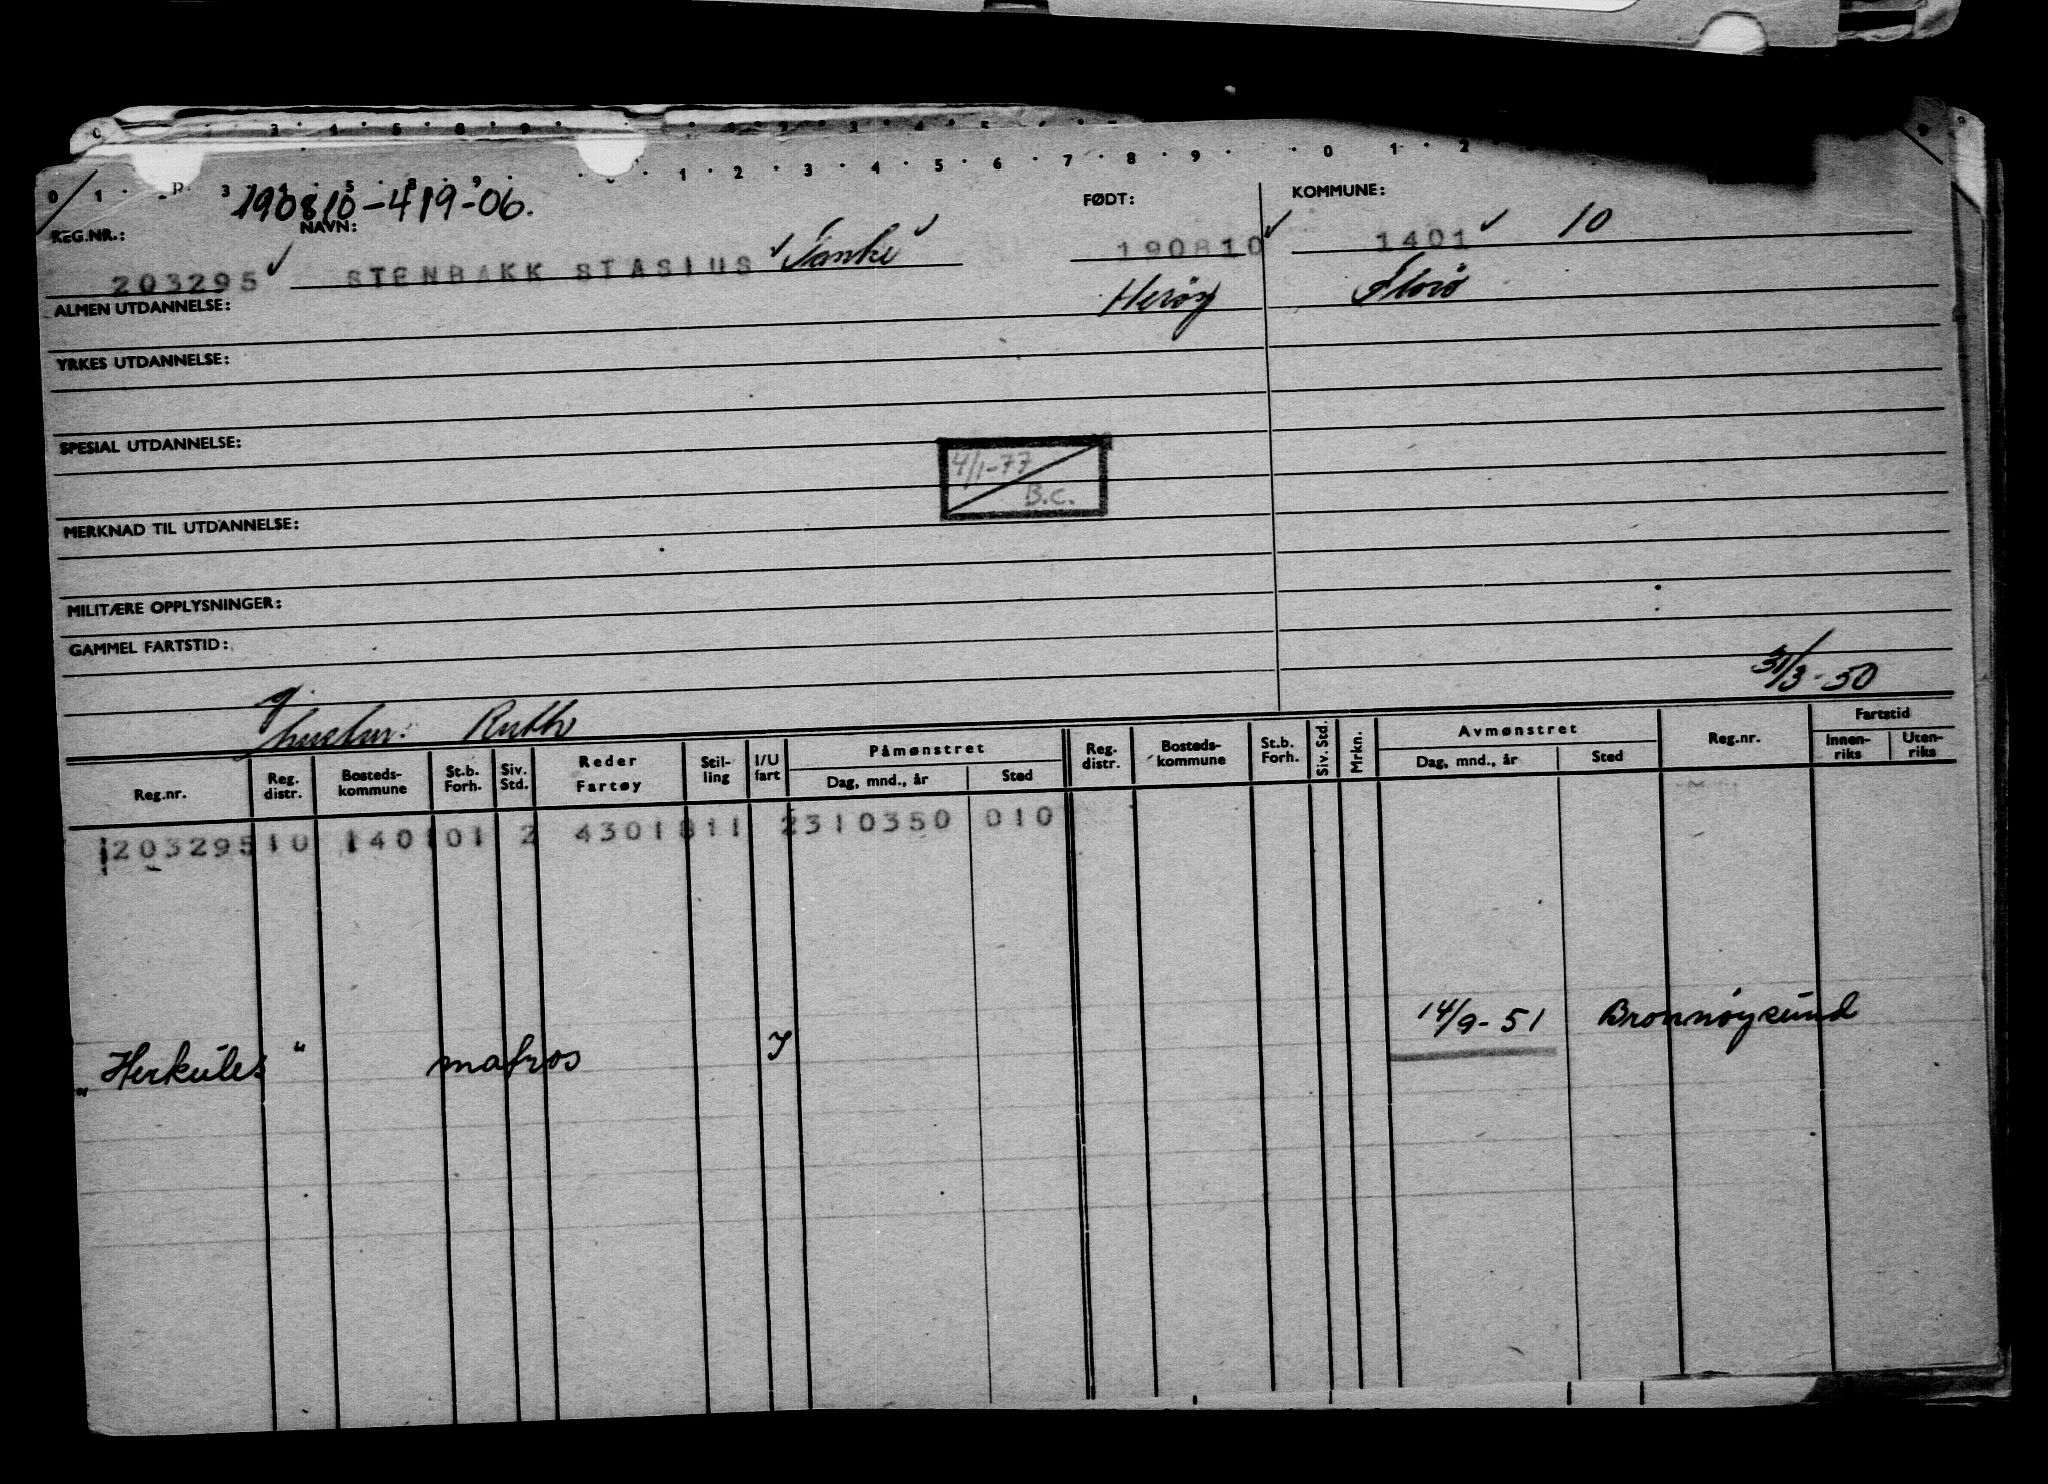 190810-419-06.
REG.NR.: NAVN: FØDT: KOMMUNE:
203295 STENBAKK STASIUS Tanke 190810 1401 10
Herøy Florø
ALMEN UTDANNELSE:
YRKES UTDANNELSE:
SPESIAL UTDANNELSE:
4/1-77
B.C.
MERKNAD TIL UTDANNELSE:
MILITÆRE OPPLYSNINGER:
GAMMEL FARTSTID:
31/3-50
g.
hustru: Ruth
Reg.nr. Reg. distr. Bosteds-kommune St.b. Forh. Siv. Std. Reder Fartøy Stil-ling I/U fart Påmønstret Dag, mnd., år Sted Reg. distr. Bosteds-kommune St.b. Forh. Siv. Std. Mrkn. Avmønstret Dag, mnd., år Sted Reg.nr. Fartstid Innen-riks Uten-riks
203295 10 1401 01 2 4301811 2310350 010
"Herkules" matros I 14/9-51 Brønnøysund